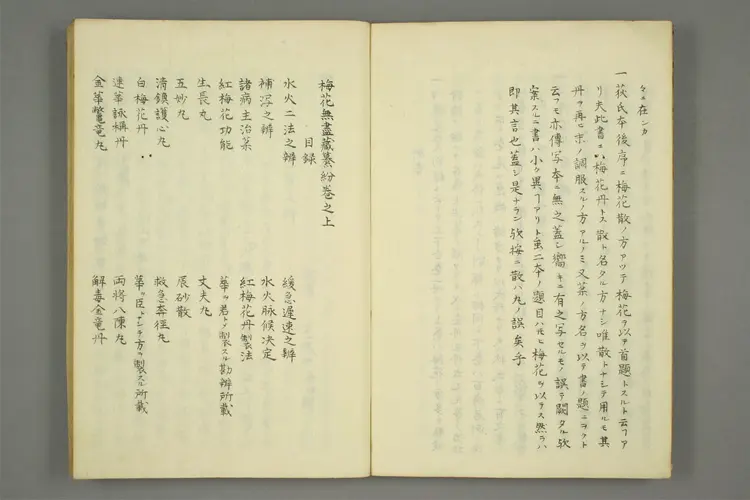 々々在ンカ
一荻氏本後序ニ梅花散ノ方アツテ梅花ヲ以テ首題トスルト云フア
リ夫此書ニハ梅花丹トス散ト名タル方ナシ唯散トナシテ用ルモ其
丹ヲ再ニ末ノ調服スルノ方アルノミ又薬ノ方名ヲ以テ書ノ題ニヲクト
云フモ亦傳写本ニ無之蓋シ嚮キニ有之写セルモノ誤テ闕タル欤
案スルニ書ハ小ク異フアリト虽二本ノ題目ハモヒ梅花ヲ以テス然ラハ
即其言也蓋シ是ナラン欤按ニ散ハ丸ノ誤矣乎
梅花無盡藏纂紛巻之上
目録
水火二法之辨
緩急遅速之辨
補泻之辨
水火脉候决定
諸病主治薬
紅梅花丹製法
紅梅花功能
華ヲ君トノ製スル勘辨所載
生長丸
丈夫丸
五妙丸
辰砂散
清鎮護心丸
救急奔徑丸
白梅花丹
華ヲ臣トナシテ方ヲ製スル所載
速華詠稱丹
両将八陳丸
金華鱉竜丸
解毒金竜丹